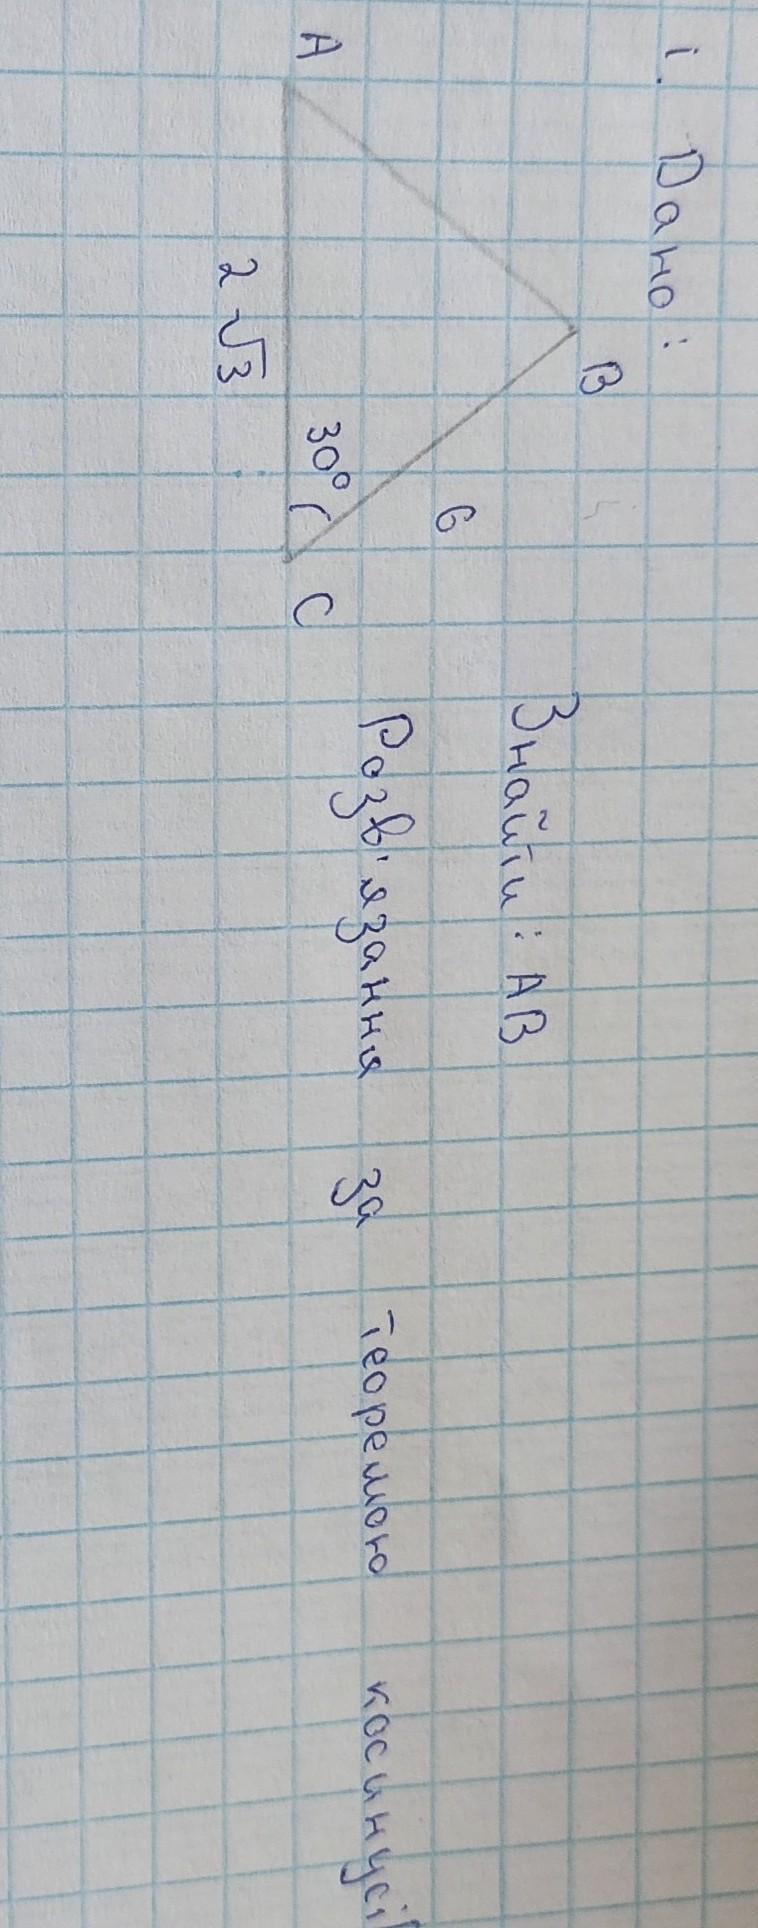 1. Дано:
B
6
A
30°
C
2√3
Знайти: AB
Розв'язання за теоремою косинусів